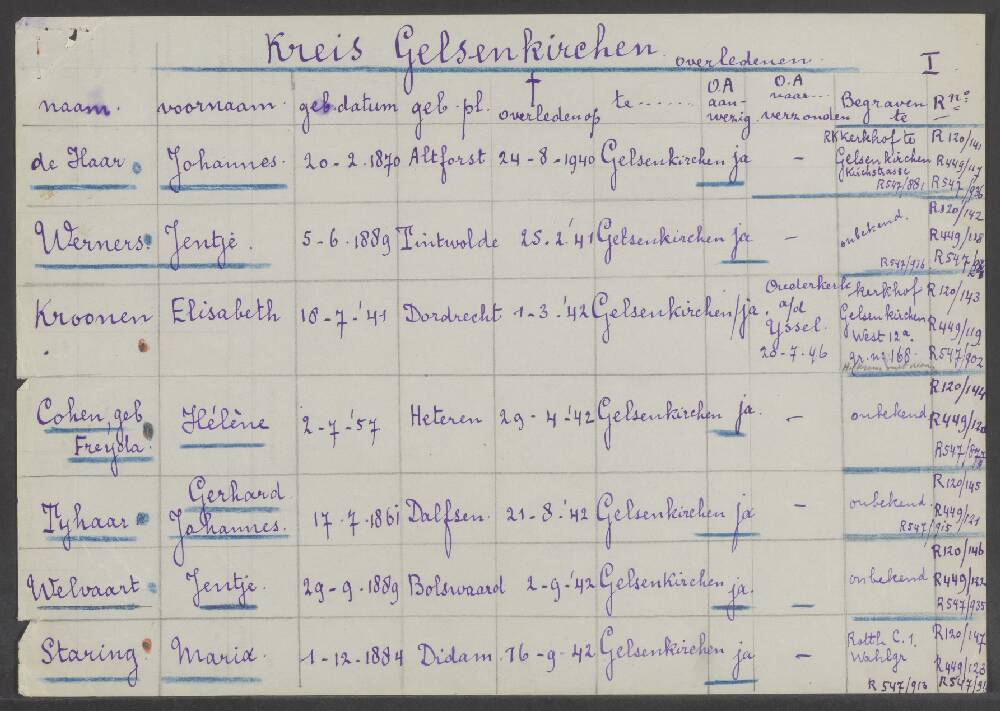 Kreis Gelsenkirchen overledenen. I
naam. voornaam. geb.datum geb. pl. † overleden op te ...... O.A aan- wezig. O.A naar... verzonden Begraven te R nº
de Haar Johannes. 20-2.1870 Altforst 24-8-1940 Gelsenkirchen ja - RK kerkhof te R120/141
Gelsenkirchen R449/117
Kirchstrasse
R547/881 R547/936
Werners. Jentje. 5-6.1889 Tintwolde 25.2.'41 Gelsenkirchen ja - onbekend. R120/142
R449/118
R547/936 R547/
Kroonen Elisabeth 18-7-'41 Dordrecht 1-3.'42 Gelsenkirchen/ja. Ouderkerk a/d Yssel. 20-7-46 kerkhof R120/143
Gelsenkirchen R449/119
West 12a.
gr. nº 168. R547/902
Cohen, geb Freyda. Hélène 2-7-'57 Heteren 29-4-'42 Gelsenkirchen ja. - onbekend R120/144
R449/120
R547/877
Tyhaar Gerhard Johannes. 17.7.1861 Dalfsen. 21-8.'42 Gelsenkirchen ja - onbekend. R120/145
R449/121
R547/915
Welvaart Jentje. 29-9.1889 Bolswaard 2-9-'42 Gelsenkirchen ja. - onbekend R120/146
R449/122
R547/935
Staring Maria. 1-12-1884 Didam. 16-9-42 Gelsenkirchen ja - Rotth C.1. R120/147
Wahlgr R449/123
R547/913 R547/91